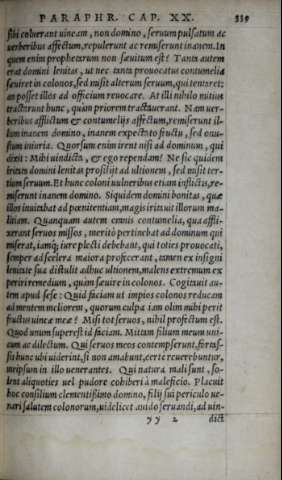 PARAPHR. CAP. XX. 339
sibi coluerant uineam, non domino, seruum pulsatum ac
uerberibus affectum, repulerunt ac remiserunt inanem. In
quem enim prophetarum non sæuitum est? Tanta autem
erat domini lenitas, ut nec tanta prouocatus contumelia
sæuiret in colonos, sed misit alterum seruum, qui tentaret;
an posset illos ad officium reuocare. At illi nihilo mitius
tractarunt hunc, quàm priorem tractauerant. Nam uer-
beribus afflictum & contumelijs affectum, remiserunt il-
lum inanem domino, inanem expectato fructu, sed onu-
stum iniuria. Quorsum enim irent nisi ad dominum, qui
dixit: Mihi uindicta, & ego rependam? Ne sic quidem
irritata domini lenitas prosilijt ad ultionem, sed misit ter-
tium seruum. Et hunc coloni uulneribus etiam inflictis, re-
miserunt inanem domino. Siquidem domini bonitas, quæ
illos inuitabat ad pœnitentiam, magis irritauit illorum ma-
litiam. Quanquam autem omnis contumelia, qua affli-
xerant seruos missos, meritò pertinebat ad dominum qui
miserat, iamq; iure plecti debebant, qui toties prouocati,
semper ad scelera maiora profecerant, tamen ex insigni
lenitate sua distulit adhuc ultionem, malens extremum ex
periri remedium, quàm sæuire in colonos. Cogitauit au-
tem apud sese: Quid faciam ut impios colonos reducam
ad mentem meliorem, quorum culpa iam olim mihi perit
fructus uineæ meæ? Misi tot seruos, nihil profectum est.
Quod unum superest id faciam. Mittam filium meum uni-
cum ac dilectum. Qui seruos meos contempserunt, fortas-
sis hunc ubi uiderint, si non amabunt, certè reuerebuntur,
meipsum in illo uenerantes. Qui natura mali sunt, so-
lent aliquoties uel pudore cohiberi à maleficio. Placuit
hoc consilium clementissimo domino, filij sui periculo ue-
nari salutem colonorum, uidelicet auido seruandi, ad uin-
yy 2 dict